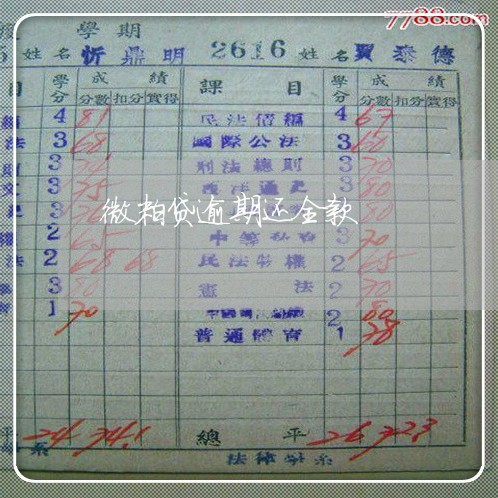 7788.com
學期
姓名 忻鼎明 2616 姓名 賈泰德
目 學分 成績 課目 學分 成績
分數 扣分 實得 分數 扣分 實得
4 81 民法債編 4 67
法 3 68 國際公法 3 60
3 刑法總則 3 70
3 75 3 80
3 80
微粒贷逾期还全款
2 65 3 70
法 2 68 68 民法物權 2 65
3 80 憲法 2 70
1 70 2 80
普通體育 1 78
平 24 74.1 總平 26 72.3
系 法律學系